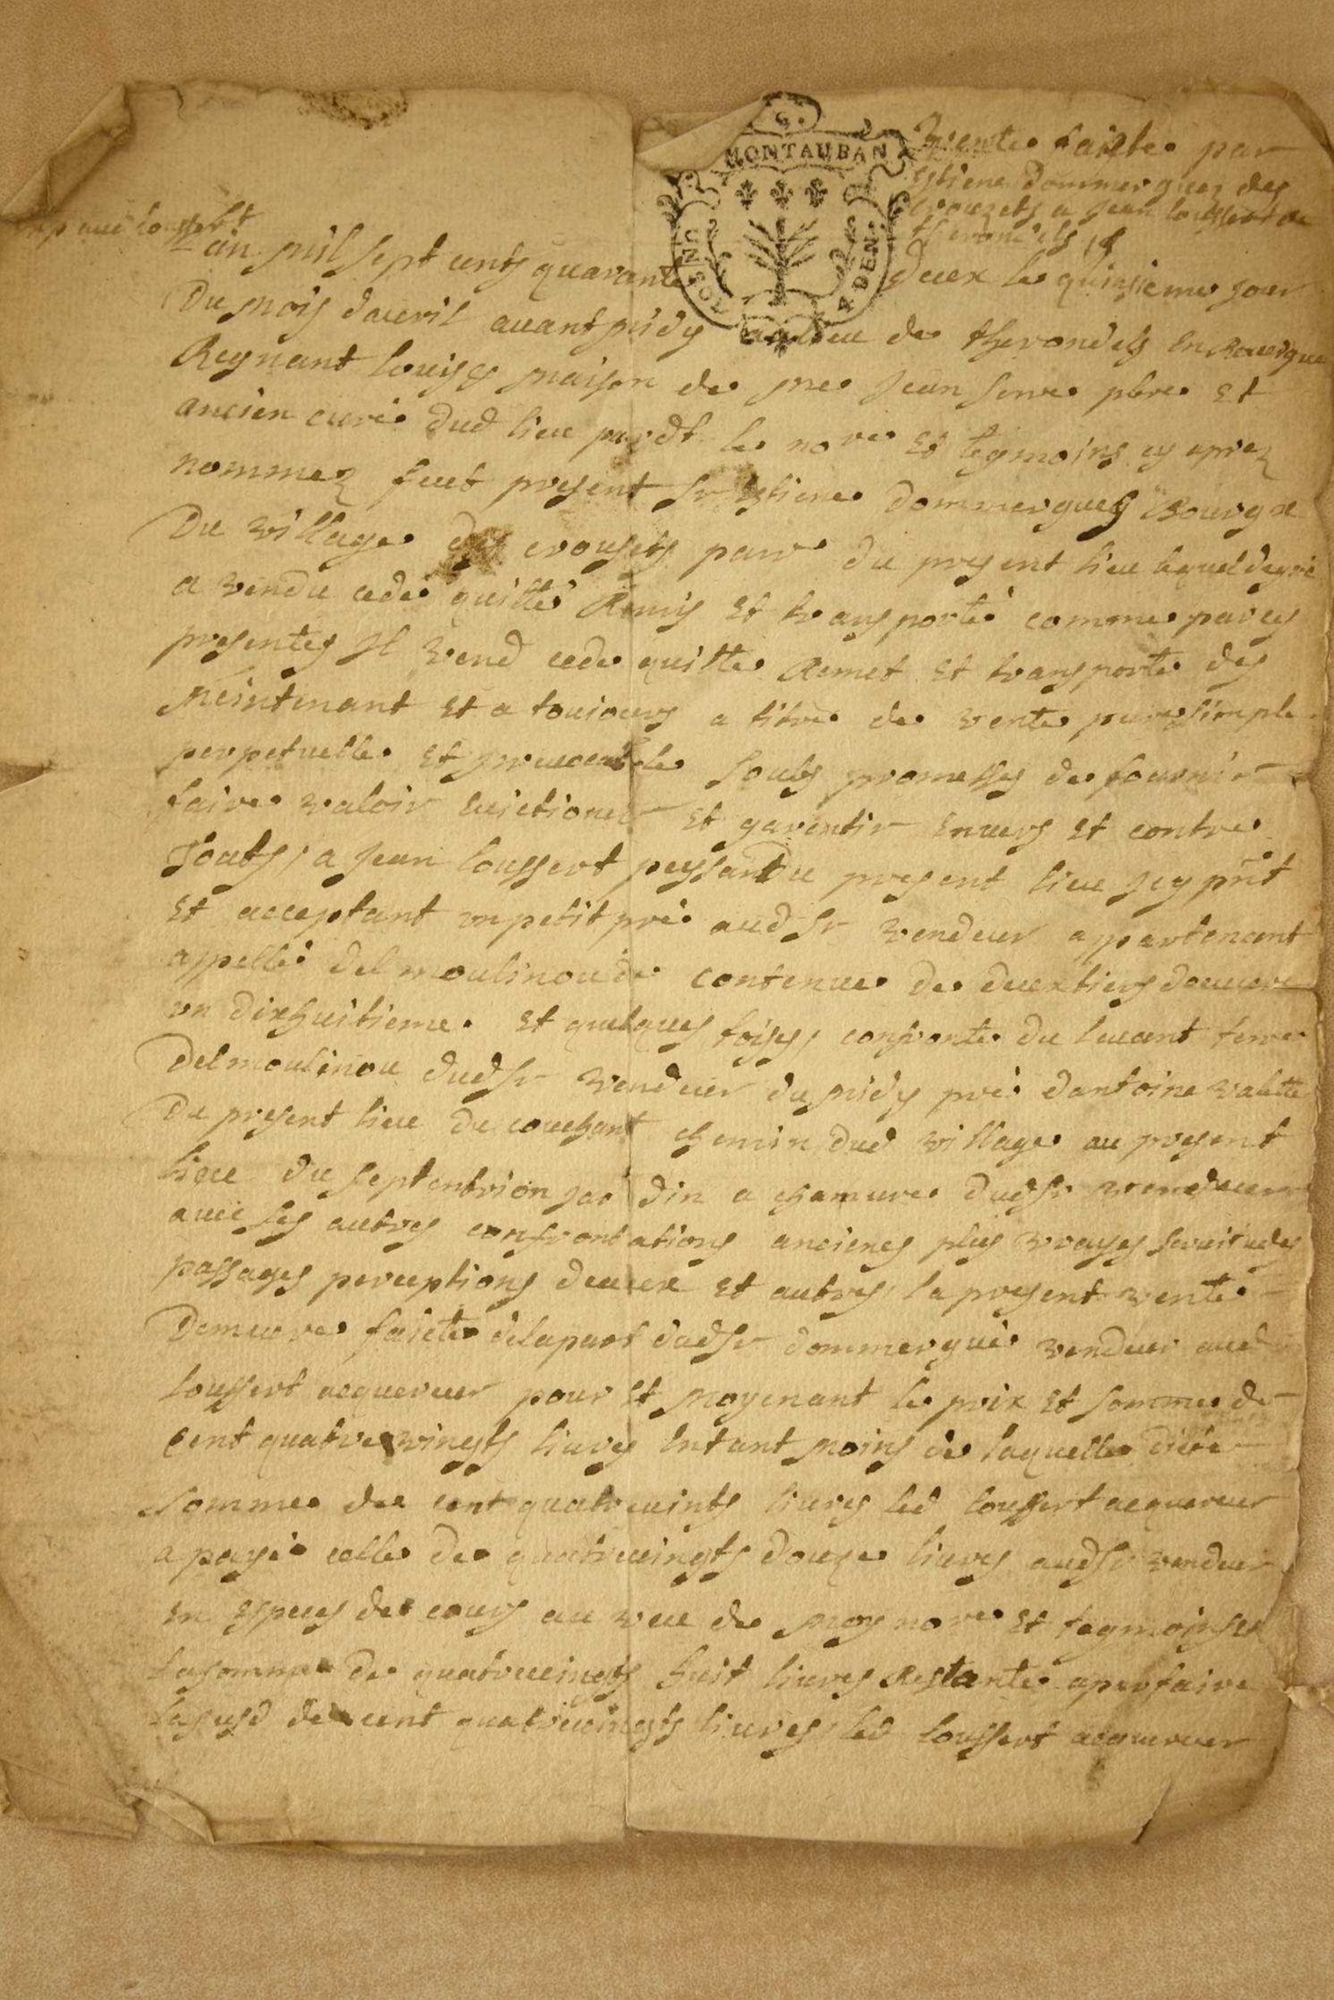 Vente faicte par
Estiene dommergues des
crouzets a Jean loussert de
therondels
MONTAUBAN
DEN
Lan mil sept cents quarante deux le quinsieme jour
Du mois dauril auant midy au lieu de therondels En Rouergue
Regnant louis maison de me Jean serre pbre Et
ancien curé dud lieu pardt le nore Et tesmoins cy apres
nommez feut present sr Estiene dommergues Bourgs
Du village des crousets parr du present lieu lequel de gré
a vendu cedé quitté Remis Et transporté comme par ces
presentes Il vend cede quitte Remet Et transporte des
Meintenant Et a toujours a titre de vente pure simple
perpetuelle Et Irreuocable soubs promesses de fournir
faire valoir Euictioner Et garentir Enuers Et contre
Touts, a Jean loussert peysant du present lieu Icy pnt
Et acceptant vn petit pré aud sr vendeur appartenant
appellé del moulinou de contenue de deux tiers douure
vn dixhuitieme Et quelques toises, confronte du leuant terre
Del moulinou dud sr vendeur du midy pré dantoine valette
Du present lieu du couchant chemin dud village au present
lieu du septentrion jardin a chamure dud sr vendeur
auec ses autres confrontations ancienes plus vrayes seruitudes
passages perceptions deaux Et autres, la present vente
Demeure faicte de la part dud sr dommergue vendeur aud
loussert acquereur pour Et moyenant le prix Et somme de
Cent quatre vingts liures Entant moins de laquelle dicte
somme de cent quatreuints liures led loussert acquereur
a payé celle de quatreuingts douze liures aud sr vendeur
En Especes de cours au veu de Moy nore Et tesmoins Et
la somme de quatreuingts huit liures Restante a perfaire
lasusd de cent quatreuingts liures led loussert acquereur